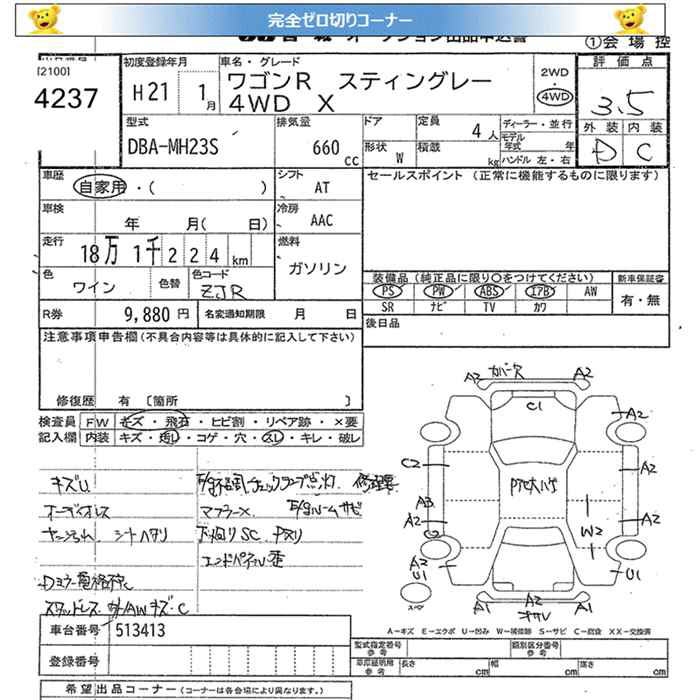 完全ゼロ切りコーナー
①会場控
[2100]
4237
初度登録年月
H21 1月
車名・グレード
ワゴンR スティングレー
4WD X
2WD
4WD
評価点
3.5
外装 内装
D C
型式
DBA-MH23S
排気量
660 cc
ドア
形状 W
定員 4人
積載 kg
ディーラー・並行
モデル年式 年
ハンドル 左・右
車歴
自家用・( )
シフト
AT
車検
年 月( 日)
冷房
AAC
走行
18万1千224km
燃料
ガソリン
色
ワイン
色替
色コード
ZJR
R券 9,880円
名変通知期限 月 日
セールスポイント (正常に機能するものに限ります)
装備品(純正品に限り○をつけてください)
PS PW ABS エアB AW
SR ナビ TV カワ
新車保証書
有・無
後日品
注意事項申告欄(不具合内容等は具体的に記入して下さい)
修復歴 有〔箇所 〕
検査員記入欄
FW キズ・飛石・ヒビ割・リペア跡・×要
内装 キズ・汚し・コゲ・穴・スレ・キレ・破レ
キズU
オーディオレス
シートヘタリ
マフラー×
下廻りSC
車台番号 513413
登録番号
A2 カバー欠 A2
C1
A2
C2
A2
A3
A2
W2
A2
A2
U1
U1
A1
A2
キサレ
A1
A-キズ E-エクボ U-凹み W-補修跡 S-サビ C-腐食 XX-交換済
型式指定番号 参考
類別区分番号 参考
車庫証明用 参考
長さ cm 幅 cm 高さ cm
希望出品コーナー(コーナーは各会場により異なります。)